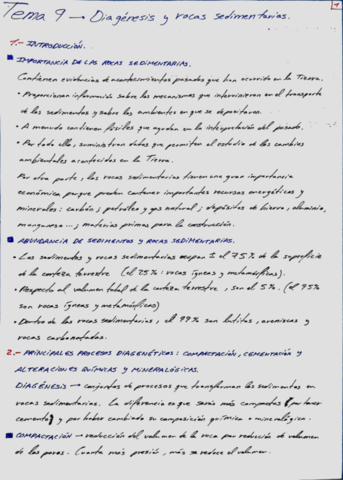 Tema 9 → Diagénesis y rocas sedimentarias.
1
1.- INTRODUCCIÓN.
■ IMPORTANCIA DE LAS ROCAS SEDIMENTARIAS.
Contienen evidencias de acontecimientos pasados que han ocurrido en la Tierra.
• Proporcionan información sobre los mecanismos que intervinieron en el transporte
de los sedimentos y sobre los ambientes en que se depositaron.
• A menudo contienen fósiles que ayudan en la interpretación del pasado.
• Por todo ello, suministran datos que permiten el estudio de los cambios
ambientales acontecidos en la Tierra.
Por otra parte, las rocas sedimentarias tienen una gran importancia
económica porque pueden contener importantes recursos energéticos y
minerales: carbón; petróleo y gas natural; depósitos de hierro, aluminio,
manganeso...; materias primas para la construcción.
■ ABUNDANCIA DE SEDIMENTOS Y ROCAS SEDIMENTARIAS.
• Los sedimentos y rocas sedimentarias ocupan ± el 75% de la superficie
de la corteza terrestre (el 25%: rocas ígneas y metamórficas).
• Respecto al volumen total de la corteza terrestre, son el 5%. (el 95%
son rocas ígneas y metamórficas)
• Dentro de las rocas sedimentarias, el 99% son lutitas, areniscas y
rocas carbonatadas.
2.- PRINCIPALES PROCESOS DIAGENÉTICOS: COMPACTACIÓN, CEMENTACIÓN Y
ALTERACIONES QUÍMICAS Y MINERALÓGICAS.
DIAGÉNESIS → conjuntos de procesos que transforman los sedimentos en
rocas sedimentarias. La diferencia es que serán más compactas (por tener
cemento) y por haber cambiado su composición química o mineralógica.
■ COMPACTACIÓN → reducción del volumen de la roca por reducción de volumen
de los poros. Cuanta más presión, más se reduce el volumen.